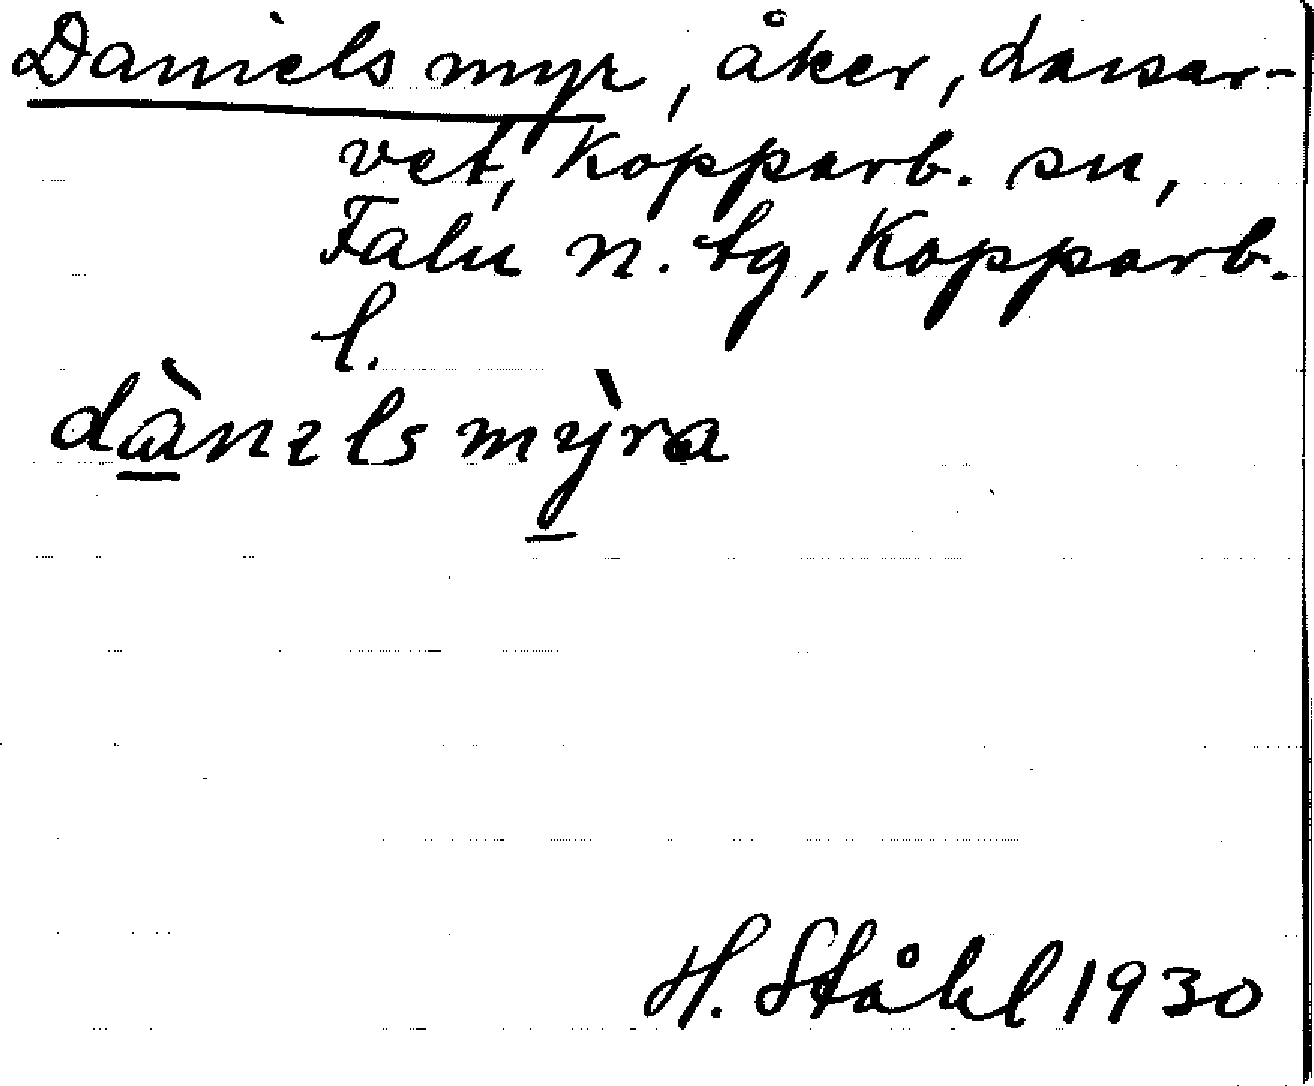 Daniels myr, åker, Lassar-
vet, Kopparb. sn,
Falu n. tg, Kopparb.
l.
dànɩls mỳra
H. Ståhl 1930